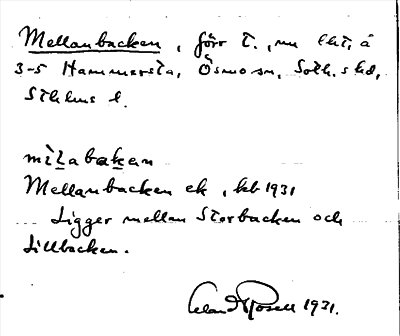 Mellanbacken, förr t., nu lht, å
3-5 Hammersta, Ösmo sn, Soth. shd,
Sthlms l.
mìlabakan
Mellanbacken ek, kb 1931
Ligger mellan Storbacken och
Lillbacken.
Rosell 1931.